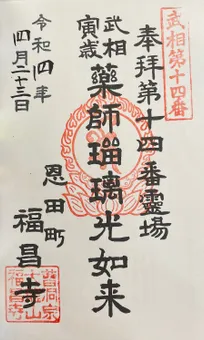 武相第十四番
奉拝第十四番霊場
武相
寅歳
藥師瑠璃光如来
恩田町
福昌寺
令和四年
四月二十三日